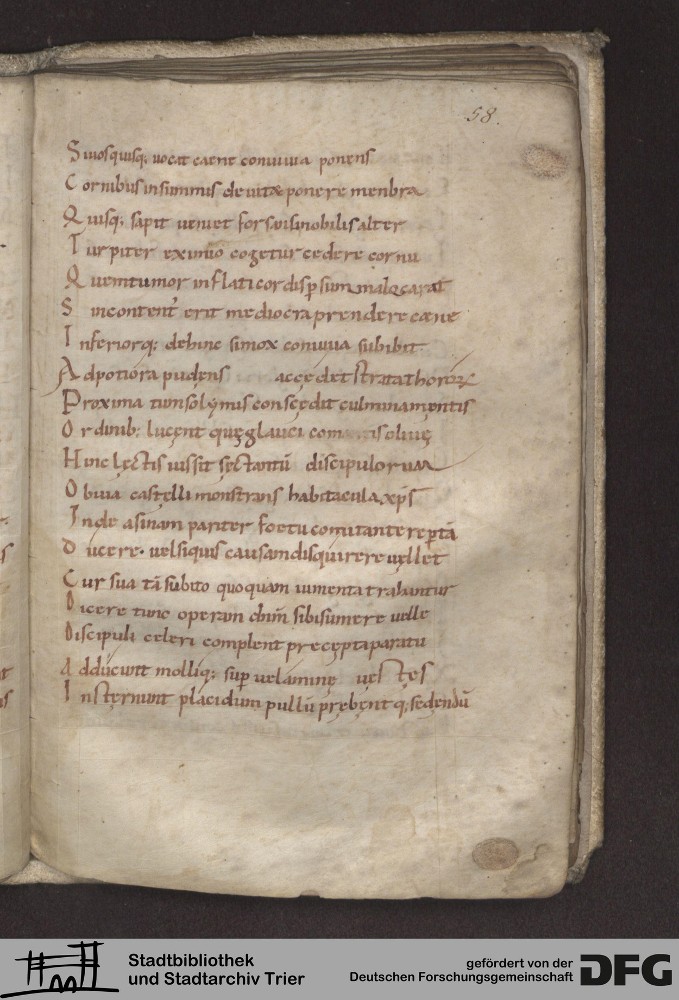 58.
Siuosquisq; uocat caene conuiuia ponens
Cornibus insummis deuitæ ponere menbra
Quisq; sapit ueniet forsanisinobilis alter
Turpiter eximio cogetur cedere cornu
Quemtumor inflati cordis psum
Sincontent' erit mediocra prendere caene
Inferiorq; dehinc simox conuiuia subibit
Adpotiora pudens accędet strata
Proxima tumsolymis conscędit culmina mentis
Ordinib; lucent quę glauci oliuę
Hinc lęctis iussit sęctantū discipulorum
Obuia castelli monstrans habitacula xp̄s
Inde asinam pariter foetu comitante reptā
Ducere. uelsiquis causam disquirere uęllet
Cur sua tā subito quoquam iumenta trahantur
Dicere tunc operam dn̄m sibisumere uelle
Discipuli celeri complent precępta paratu
Adducunt molliq; sup uelaminę uęstęs
Insternunt placidum pullū prębęnt q; sedęndū
Stadtbibliothek
und Stadtarchiv Trier
gefördert von der
Deutschen Forschungsgemeinschaft
DFG